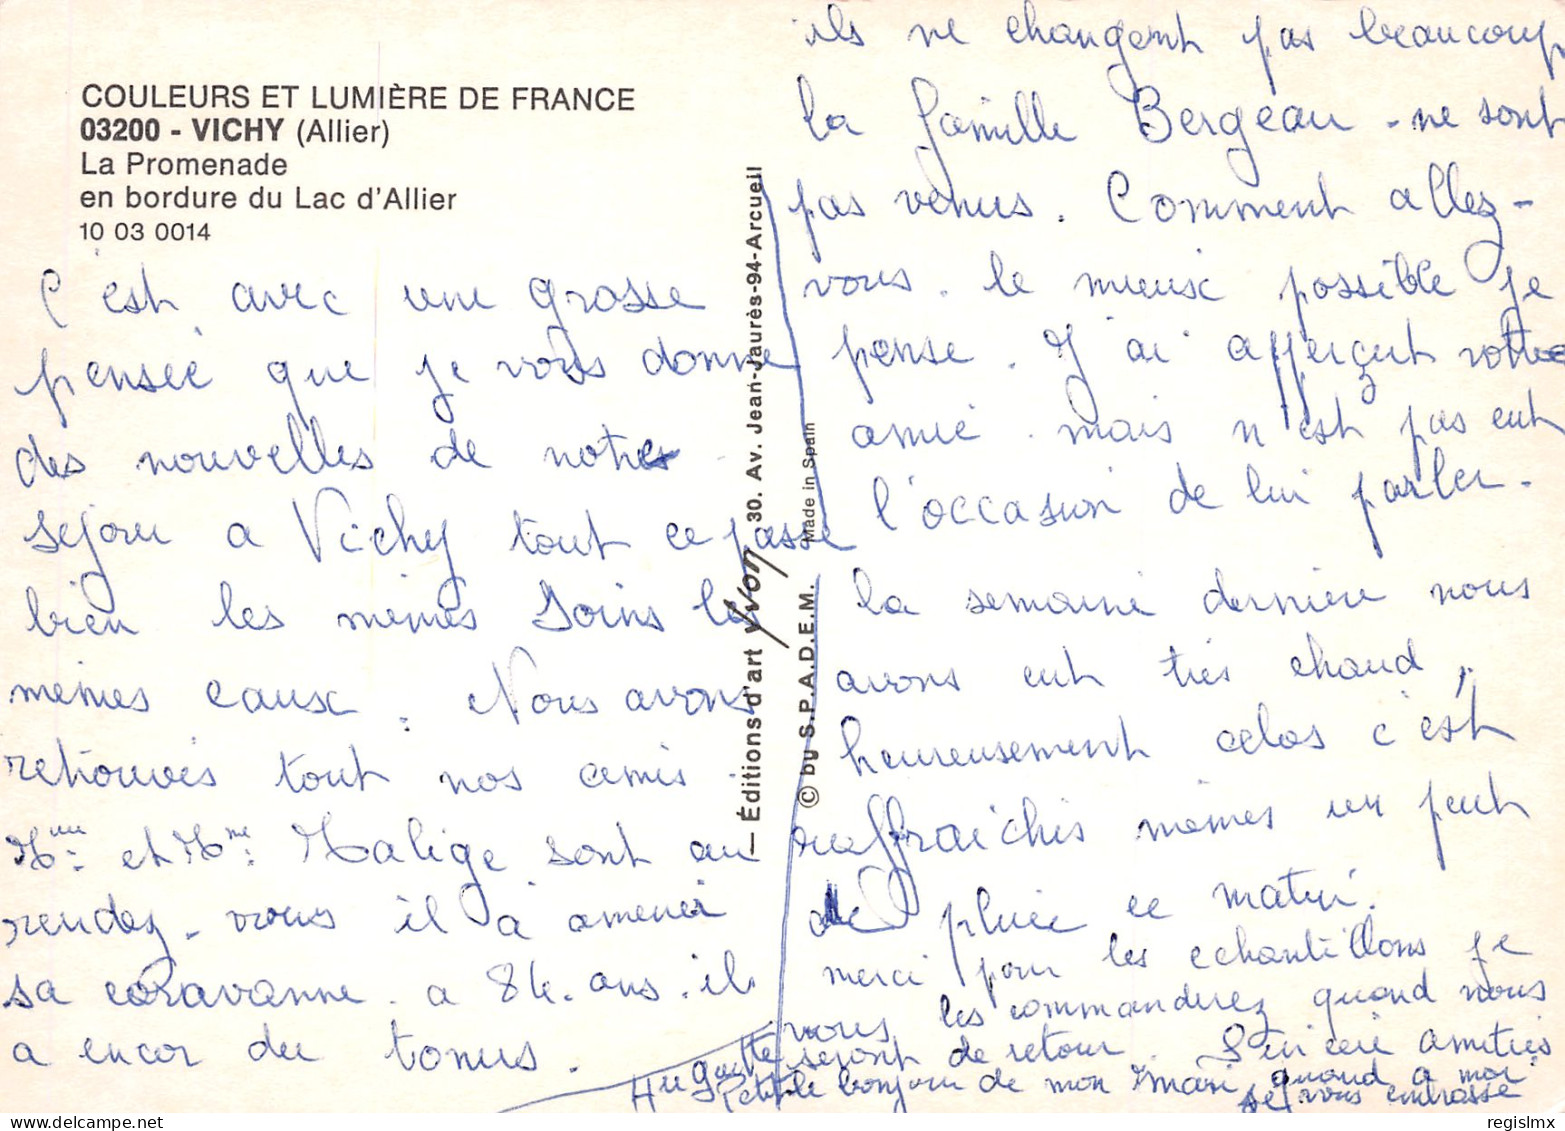 COULEURS ET LUMIÈRE DE FRANCE
03200 - VICHY (Allier)
La Promenade
en bordure du Lac d'Allier
10 03 0014
C'est avec une grosse
pensée que je vous donne
des nouvelles de notre
sejour a Vichy tout ce passe
bien les mêmes soins les
mêmes eaux. Nous avons
retrouvés tout nos amis
Mr et Mme Malige sont au
rendez-vous il à amener
sa caravanne. a 84. ans. il
a encor du tonus.
— Éditions d'art Yvon 30. Av. Jean-Jaurès-94-Arcueil
© by S.P.A.D.E.M. Made in Spain
ils ne changent pas beaucoup
la famille Bergeau - ne sont
pas venus. Comment allez-
vous. le mieux possible je
pense. J'ai afferçut votre
amie. mais n'est pas eut
l'occasion de lui parler.
la semaine dernière nous
avons eut très chaud,
heureusement celas c'est
raffraichis mêmes un peut
de pluie ce matin.
merci pour les echantillons je
vous les commanderez quand nous
seront de retour. Sincère amitiés
Huguette
Petit le bonjour de mon Mari quand a moi
je vous embrasse
regislmx